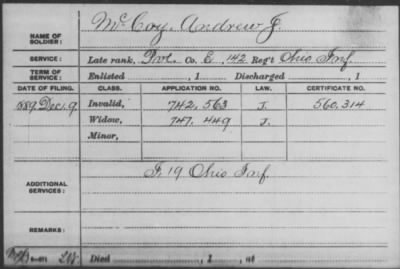 NAME OF SOLDIER: McCoy, Andrew J.
SERVICE: Late rank, Pvt. Co. E, 142 Reg't Ohio Inf.
TERM OF SERVICE: Enlisted , 1 Discharged , 1
DATE OF FILING. CLASS. APPLICATION NO. LAW. CERTIFICATE NO.
1889 Dec. 9 Invalid, 742,563 J. 560,314
Widow, 747,449 J.
Minor,
ADDITIONAL SERVICES: F. 19 Ohio Inf.
REMARKS:
Died , 1 , at